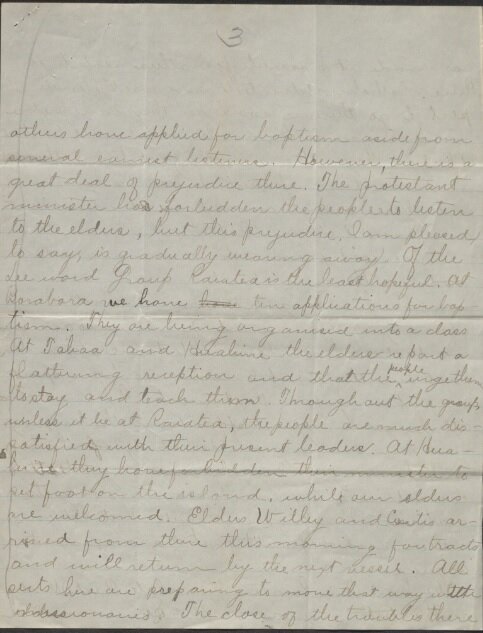 3
others have applied for baptism aside from
several earnest listeners. However, there is a
great deal of prejudice there. The protestant
minister has forbidden the people to listen
to the elders, but this prejudice, I am pleased
to say, is gradually wearing away. Of the
Leeward Group Raiatea is the least hopeful. At
Borabora we have ten applications for bap-
tism. They are being organized into a class
At Tahaa and Huahine the elders report a
flattering reception and that the people urge them
to stay and teach them. Throughout the group,
unless it be at Raiatea, the people are much dis-
satisfied with their present leaders. At Hua-
hine they have forbidden their minister to
set foot on the island, while our elders
are welcomed. Elders Willey and Curtis ar-
rived from there this morning for tracts
and will return by the next vessel. All
sects here are preparing to move that way with
missionaries. The close of the trouble there